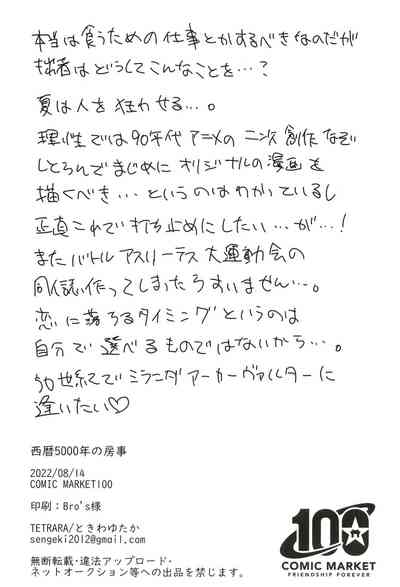 本当は食うための仕事とかするべきなのだが
拙者はどうしてこんなことを…?
夏は人を狂わせる…。
理性では90年代アニメの二次創作なぞ
しとらんでまじめにオリジナルの漫画を
描くべき…というのはわかっているし
正直これで打ち止めにしたい…が…!
またバトルアスリーテス大運動会の
同人誌作ってしまったらすいません…。
恋に落ちるタイミングというのは
自分で選べるものではないから…。
50世紀でミランダアーカーヴァルターに
逢いたい♡
西暦5000年の房事
2022/08/14
COMIC MARKET100
印刷:Bro's様
TETRARA/ときわゆたか
sengeki2012@gmail.com
無断転載・違法アップロード・
ネットオークション等への出品を禁じます。
100
COMIC MARKET
FRIENDSHIP FOREVER